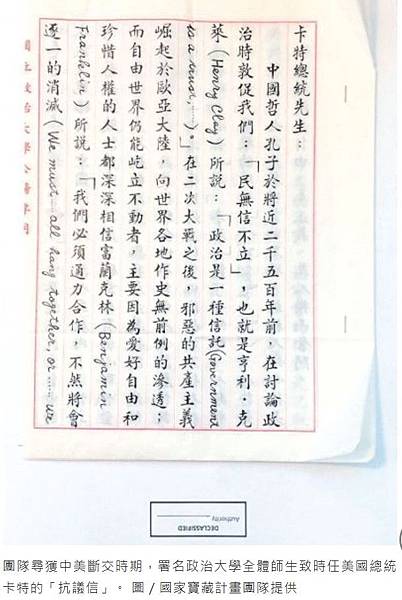 卡特總統先生：
中國哲人孔子於將近二千五百年前，在討論政
治時敦促我們：「民無信不立」，也就是亨利．克
萊(Henry Clay)所說：「政治是一種信託(Government
is a trust, ……)。」在二次大戰之後，邪惡的共產主義
崛起於歐亞大陸，向世界各地作史無前例的滲透；
而自由世界仍能屹立不動者，主要因為愛好自由和
珍惜人權的人士都深深相信富蘭克林(Benjamin
Franklin)所說：「我們必須通力合作，不然將會
逐一的消滅(We must all hang together, or …… we
國立政治大學公
DECLASSIFIED
Authority
團隊尋獲中美斷交時期，署名政治大學全體師生致時任美國總統
卡特的「抗議信」。 圖／國家寶藏計畫團隊提供